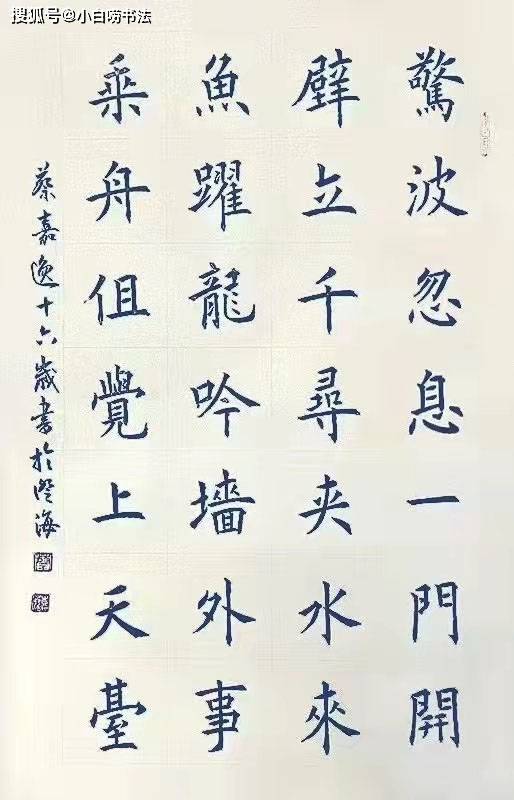 搜狐号@小白唠书法
驚波忽息一門開
壁立千尋夾水來
魚躍龍吟墻外事
乘舟但覺上天臺
蔡嘉逸十六歲書於澄海